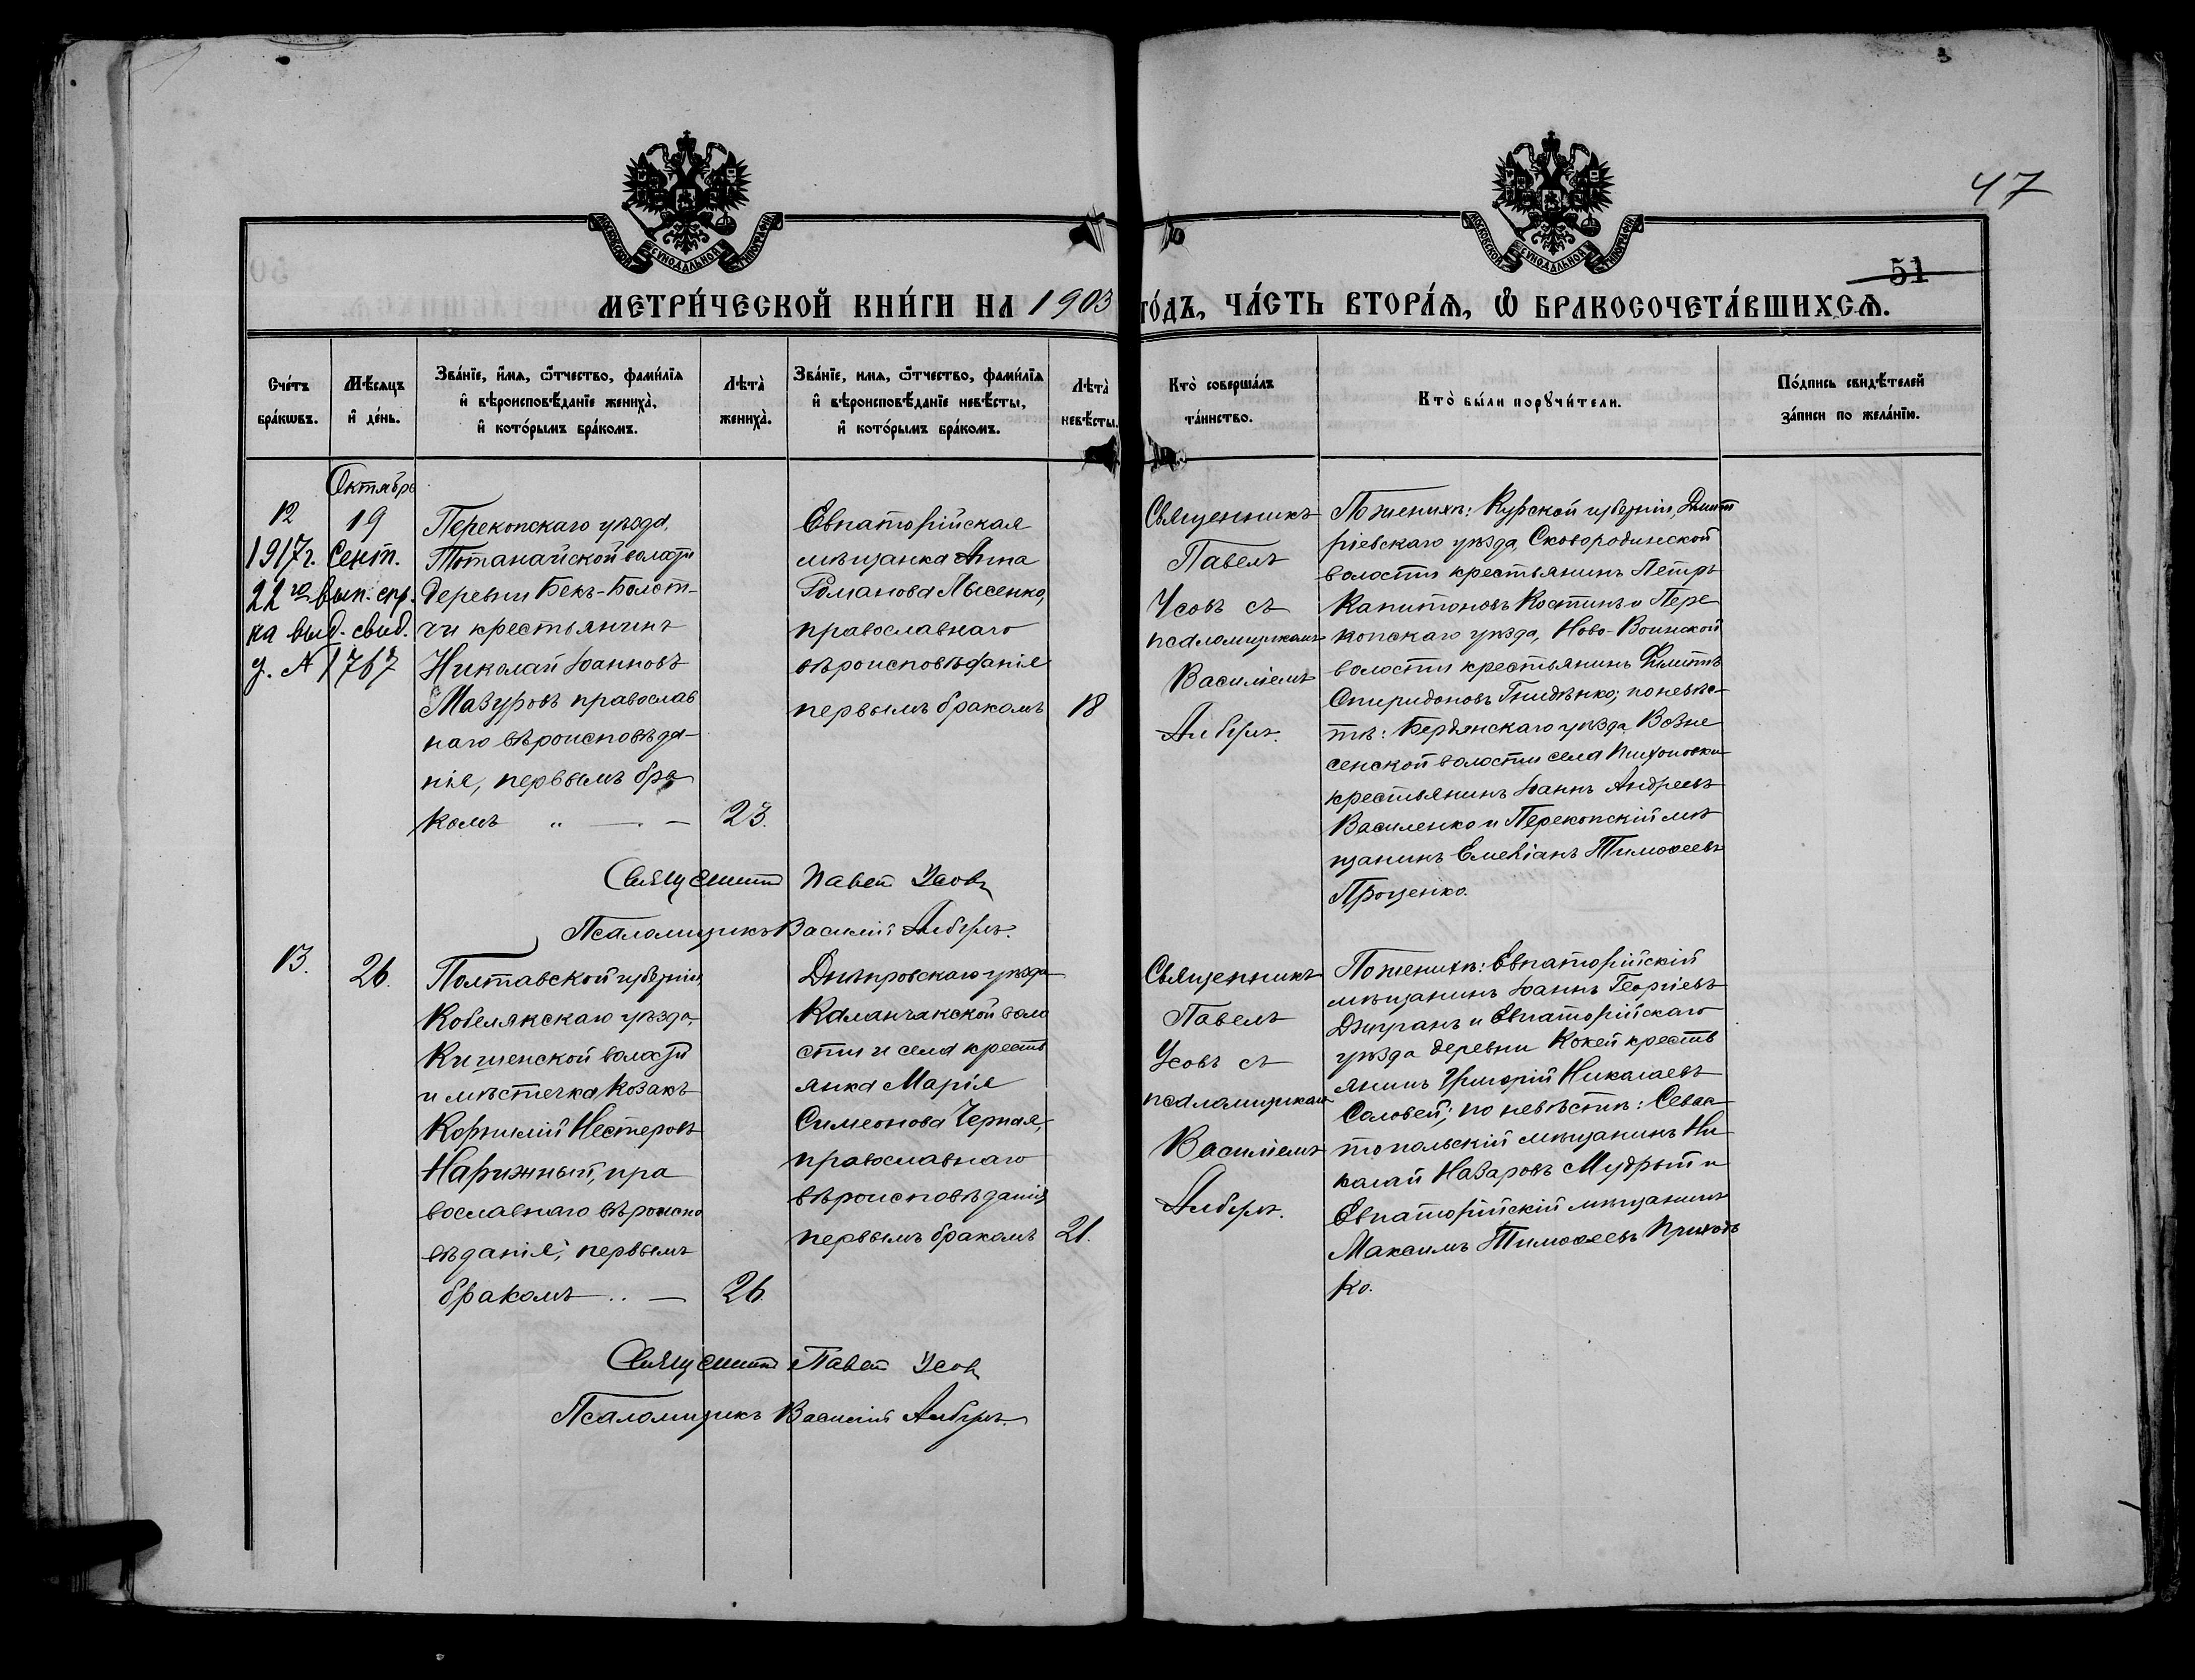 47
51
МОСКОВСКОЙ СѴНОДАЛЬНОЙ ТИПОГРАФІИ
МОСКОВСКОЙ СѴНОДАЛЬНОЙ ТИПОГРАФІИ
МЕТРИ́ЧЕСКОЙ КНИ́ГИ НА 1903 ГО́ДЪ, ЧА́СТЬ ВТОРА́Ѧ, Ѡ҆ БРАКОСОЧЕТА́ВШИХСѦ.
Сче́тъ
бра́кѡвъ.
Мѣ́сяцъ
и҆ де́нь.
Зва́нїе, и҆́мѧ, ѻ҆́тчество, фами́лїѧ
и҆ вѣроисповѣ́данїе жениха̀,
и҆ кото́рымъ бра́комъ.
Лѣта̀
жениха̀.
Зва́нїе, имѧ, ѻ҆́тчество, фами́лїѧ
и҆ вѣроисповѣ́данїе невѣ́сты,
и҆ кото́рымъ бра́комъ.
Лѣта̀
невѣ́сты.
Кто̀ соверша́лъ
та́инство.
Кто̀ бы́ли порꙋчи́тели.
По́дпись свидѣ́телей
за́писи по жела́нїю.
Октябрь
12
19
1917 г. Сент.
22 го вып. спр.
на выд. свид.
з. № 1767
Перекопскаго уѣзда,
Тотанайской волости
деревни Бекъ-Болот-
чи крестьянинъ
Николай Іоанновъ
Мазуровъ православ
наго вѣроисповѣда-
нія, первымъ бра
комъ " — . —
23.
Евпаторійская
мѣщанка Анна
Романова Лысенко,
православнаго
вѣроисповѣданія
первымъ бракомъ
18
Священникъ
Павелъ
Усовъ съ
псаломщикомъ
Василіемъ
По женихѣ: Курской губерніи, Дмит
ріевскаго уѣзда, Сковородинской
волости крестьянинъ Петръ
Капитоновъ Костинъ и Пере
копскаго уѣзда, Ново-Воинской
волости крестьянинъ
Спиридоновъ Гнидѣнко; по невѣс-
тѣ: Бердянскаго уѣзда Возне
сенской волости села
крестьянинъ Іоаннъ Андреевъ
Василенко и Перекопскій мѣ
щанинъ Емеліанъ Тимоѳеевъ
Проценко.
Священникъ Павелъ Усовъ
Псаломщикъ Василій
13.
26.
Полтавской губерніи,
Кобелякскаго уѣзда,
Кишенской волости
и мѣстечка козакъ
Корнилій Нестеровъ
Нарижный, пра
вославнаго вѣроиспо
вѣданія, первымъ
бракомъ .. —
26.
Днѣпровскаго уѣзда
Каланчакской воло
сти и села кресть
янка Марія
Симеонова Черная,
православнаго
вѣроисповѣданія,
первымъ бракомъ
21.
Священникъ
Павелъ
Усовъ съ
псаломщикомъ
Василіемъ
По женихѣ: Евпаторійскій
мѣщанинъ Іоаннъ Георгіевъ
и Евпаторійскаго
уѣзда деревни Кокей кресть
янинъ Григорій Николаевъ
Соловей; по невѣстѣ: Севас
топольскій мѣщанинъ Ни
колай Назаровъ Мудрый и
Евпаторійскій мѣщанинъ
Максимъ Тимоѳеевъ Приходь
ко.
Священникъ Павелъ Усовъ
Псаломщикъ Василій